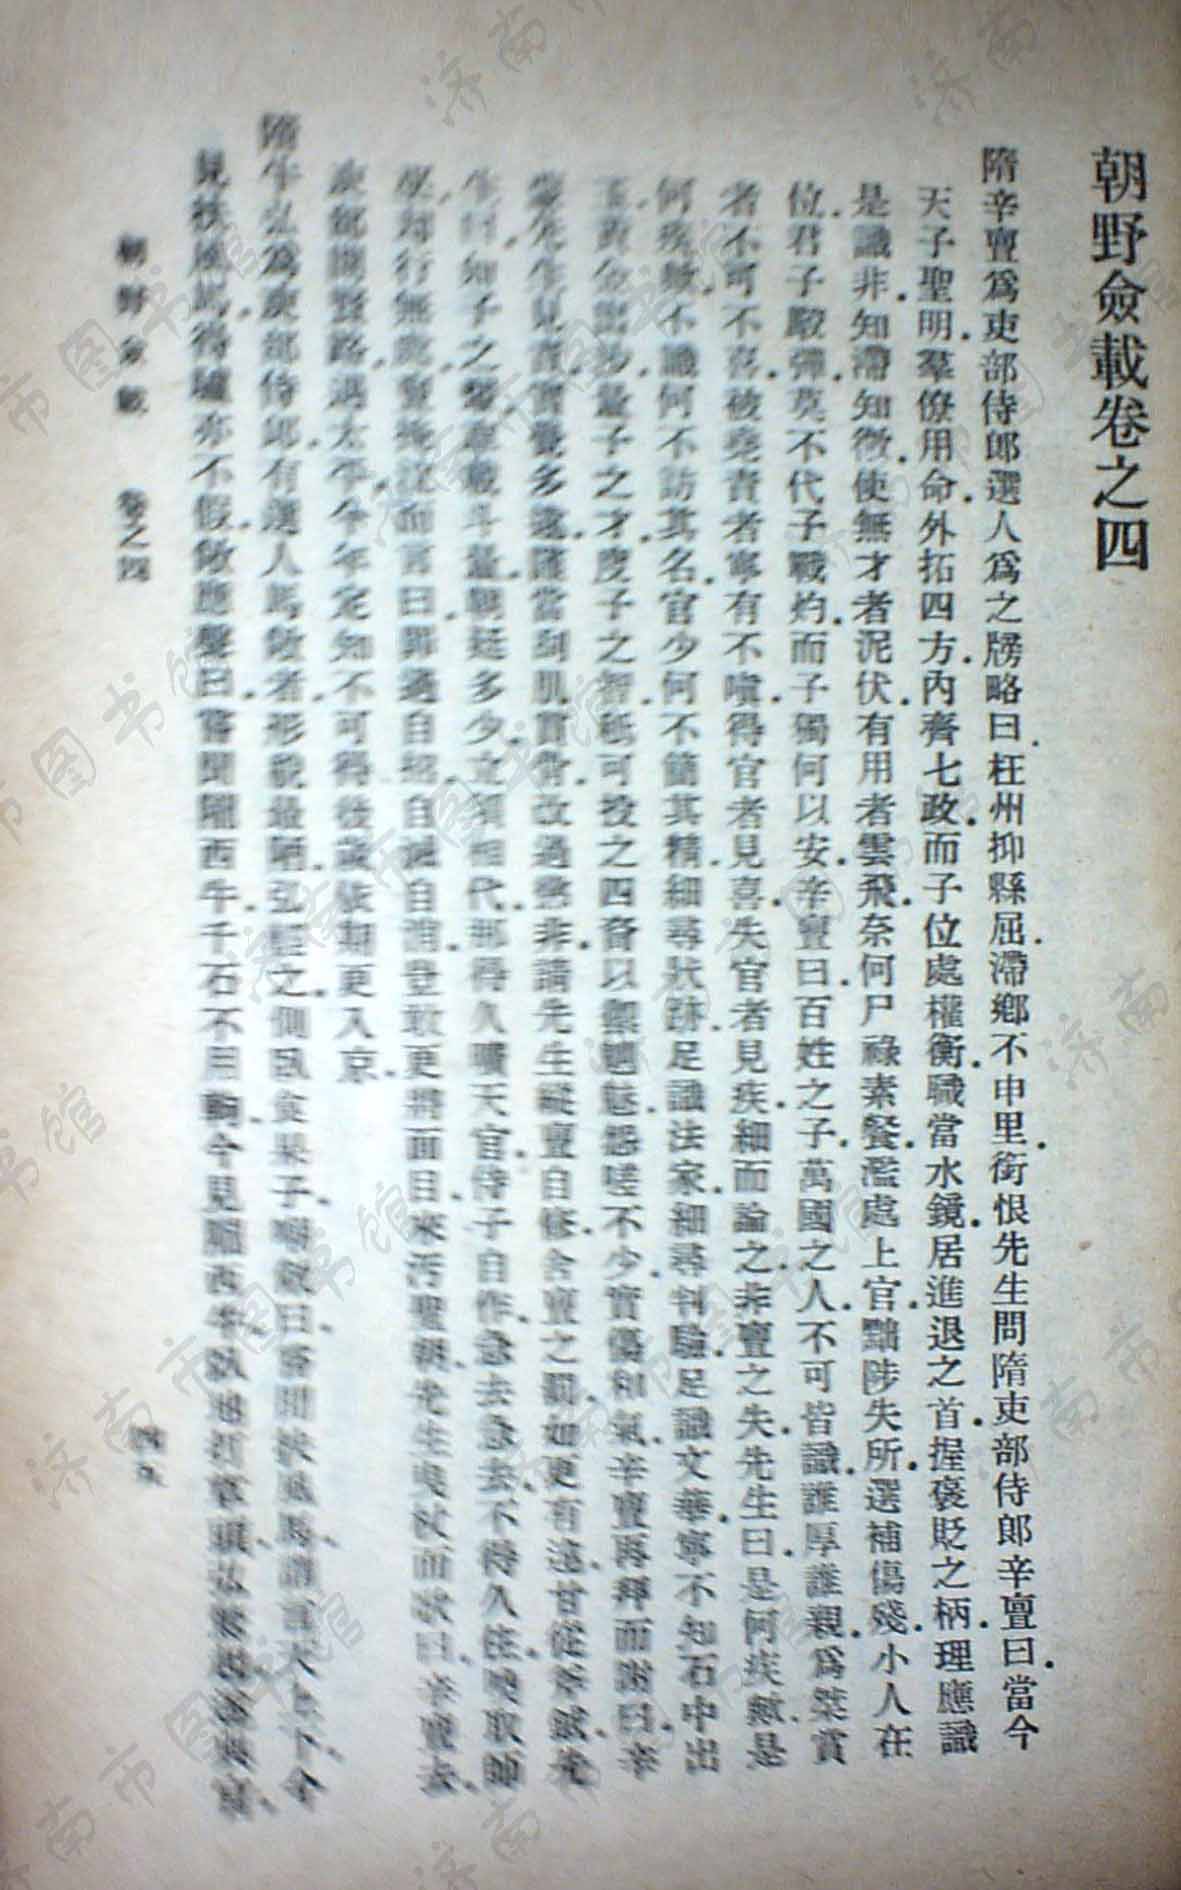 朝野僉載卷之四
隋辛亶爲吏部侍郎選人爲之牓略曰枉州抑縣屈滯鄉不申里銜恨先生問隋吏部侍郎辛亶曰當今
天子聖明羣僚用命外拓四方內齊七政而子位處權衡職當水鏡居進退之首握褒貶之柄理應識
是識非知滯知微使無才者泥伏有用者雲飛奈何尸祿素餐濫處上官黜陟失所選補傷殘小人在
位君子駮彈莫不代子戰灼而子獨何以安辛亶曰百姓之子萬國之人不可皆識誰厚誰親爲桀賞
者不可不喜被堯責者寧有不嗔得官者見喜失官者見疾細而論之非亶之失先生曰是何疾歟是
何疾歟不識何不訪其名官少何不簡其精細尋狀跡足識法家細尋判驗足識文華寧不知石中出
玉黃金出沙量子之才度子之智祇可投之四裔以禦魑魅怨嗟不少實傷和氣辛亶再拜而謝曰辛
先生見責實覺多違謹當刮肌貫骨改過懲非請先生縱亶自修舍亶之罰如更有違甘從斧鉞先
生曰如子之輩車載斗量朝廷多少立須相代那得久曠天官待子自作急去急去不得久住喚取師
巫行無 而言曰罪過自招自滅自消豈敢更將面目來污聖朝先生曳杖而歌曰辛亶去
吏部開賢路遇太平今年定知不可得後歲依期更入京
隋牛弘爲吏部侍郎有選人馬敞者形貌最陋弘輕之側臥食果子嘲敞曰嘗聞扶風馬謂言天上下今
見扶風馬得驢亦不假敞應聲曰嘗聞隴西牛千石不用軥今見隴西牛臥地打草頭弘驚起遂與官
朝野僉載 卷之四 四九
濟南市图书馆